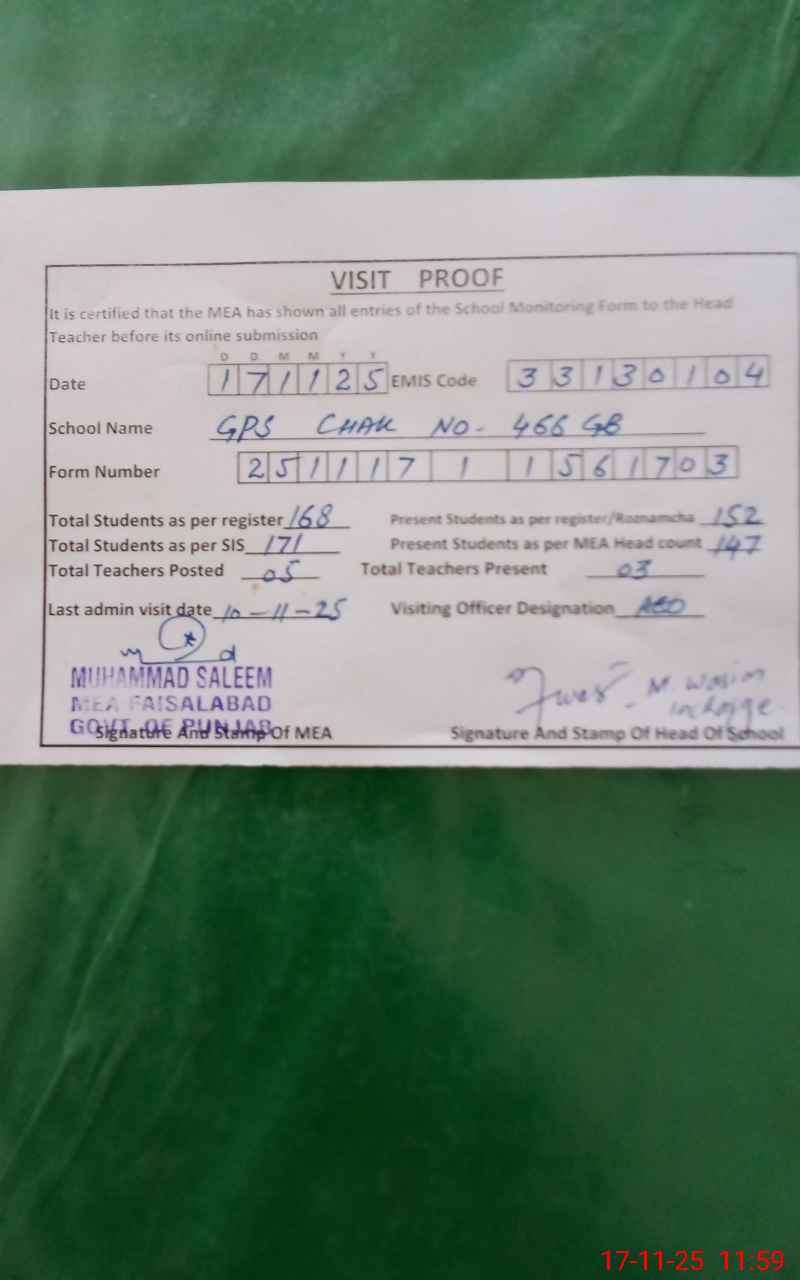 VISIT PROOF
It is certified that the MEA has shown all entries of the School Monitoring Form to the Head
Teacher before its online submission
D D M M Y Y
Date 171125 EMIS Code 33130104
School Name GPS CHAK NO- 466 GB
Form Number 251117 1 1561703
Total Students as per register 168 Present Students as per register/Roznamcha 152
Total Students as per SIS 171 Present Students as per MEA Head count 147
Total Teachers Posted 05 Total Teachers Present 03
Last admin visit date 10-11-25 Visiting Officer Designation AEO
MUHAMMAD SALEEM
MEA FAISALABAD
GOVT. OF PUNJAB
M. Wasim
incharge
Signature And Stamp Of MEA Signature And Stamp Of Head Of School
17-11-25 11:59